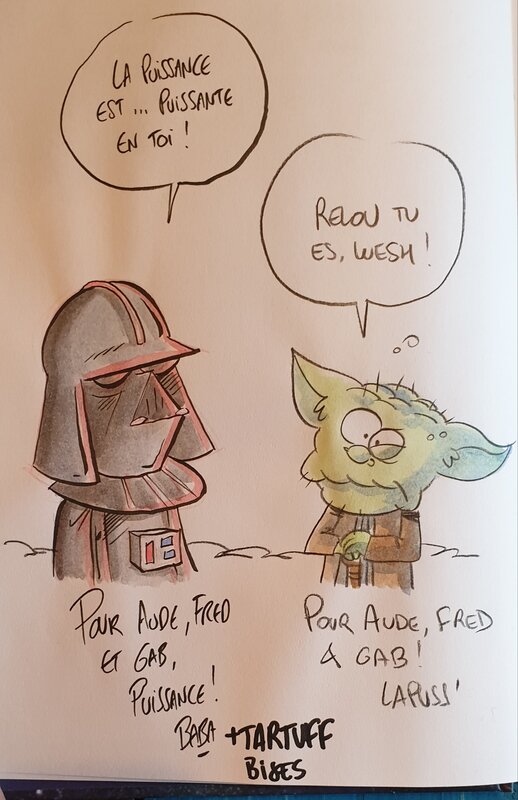 LA PUISSANCE
EST ... PUISSANTE
EN TOI !
RELOU TU
ES, WESH !
POUR AUDE, FRED
ET GAB,
PUISSANCE !
BABA
POUR AUDE, FRED
& GAB !
LAPUSS'
+TARTUFF
BISES